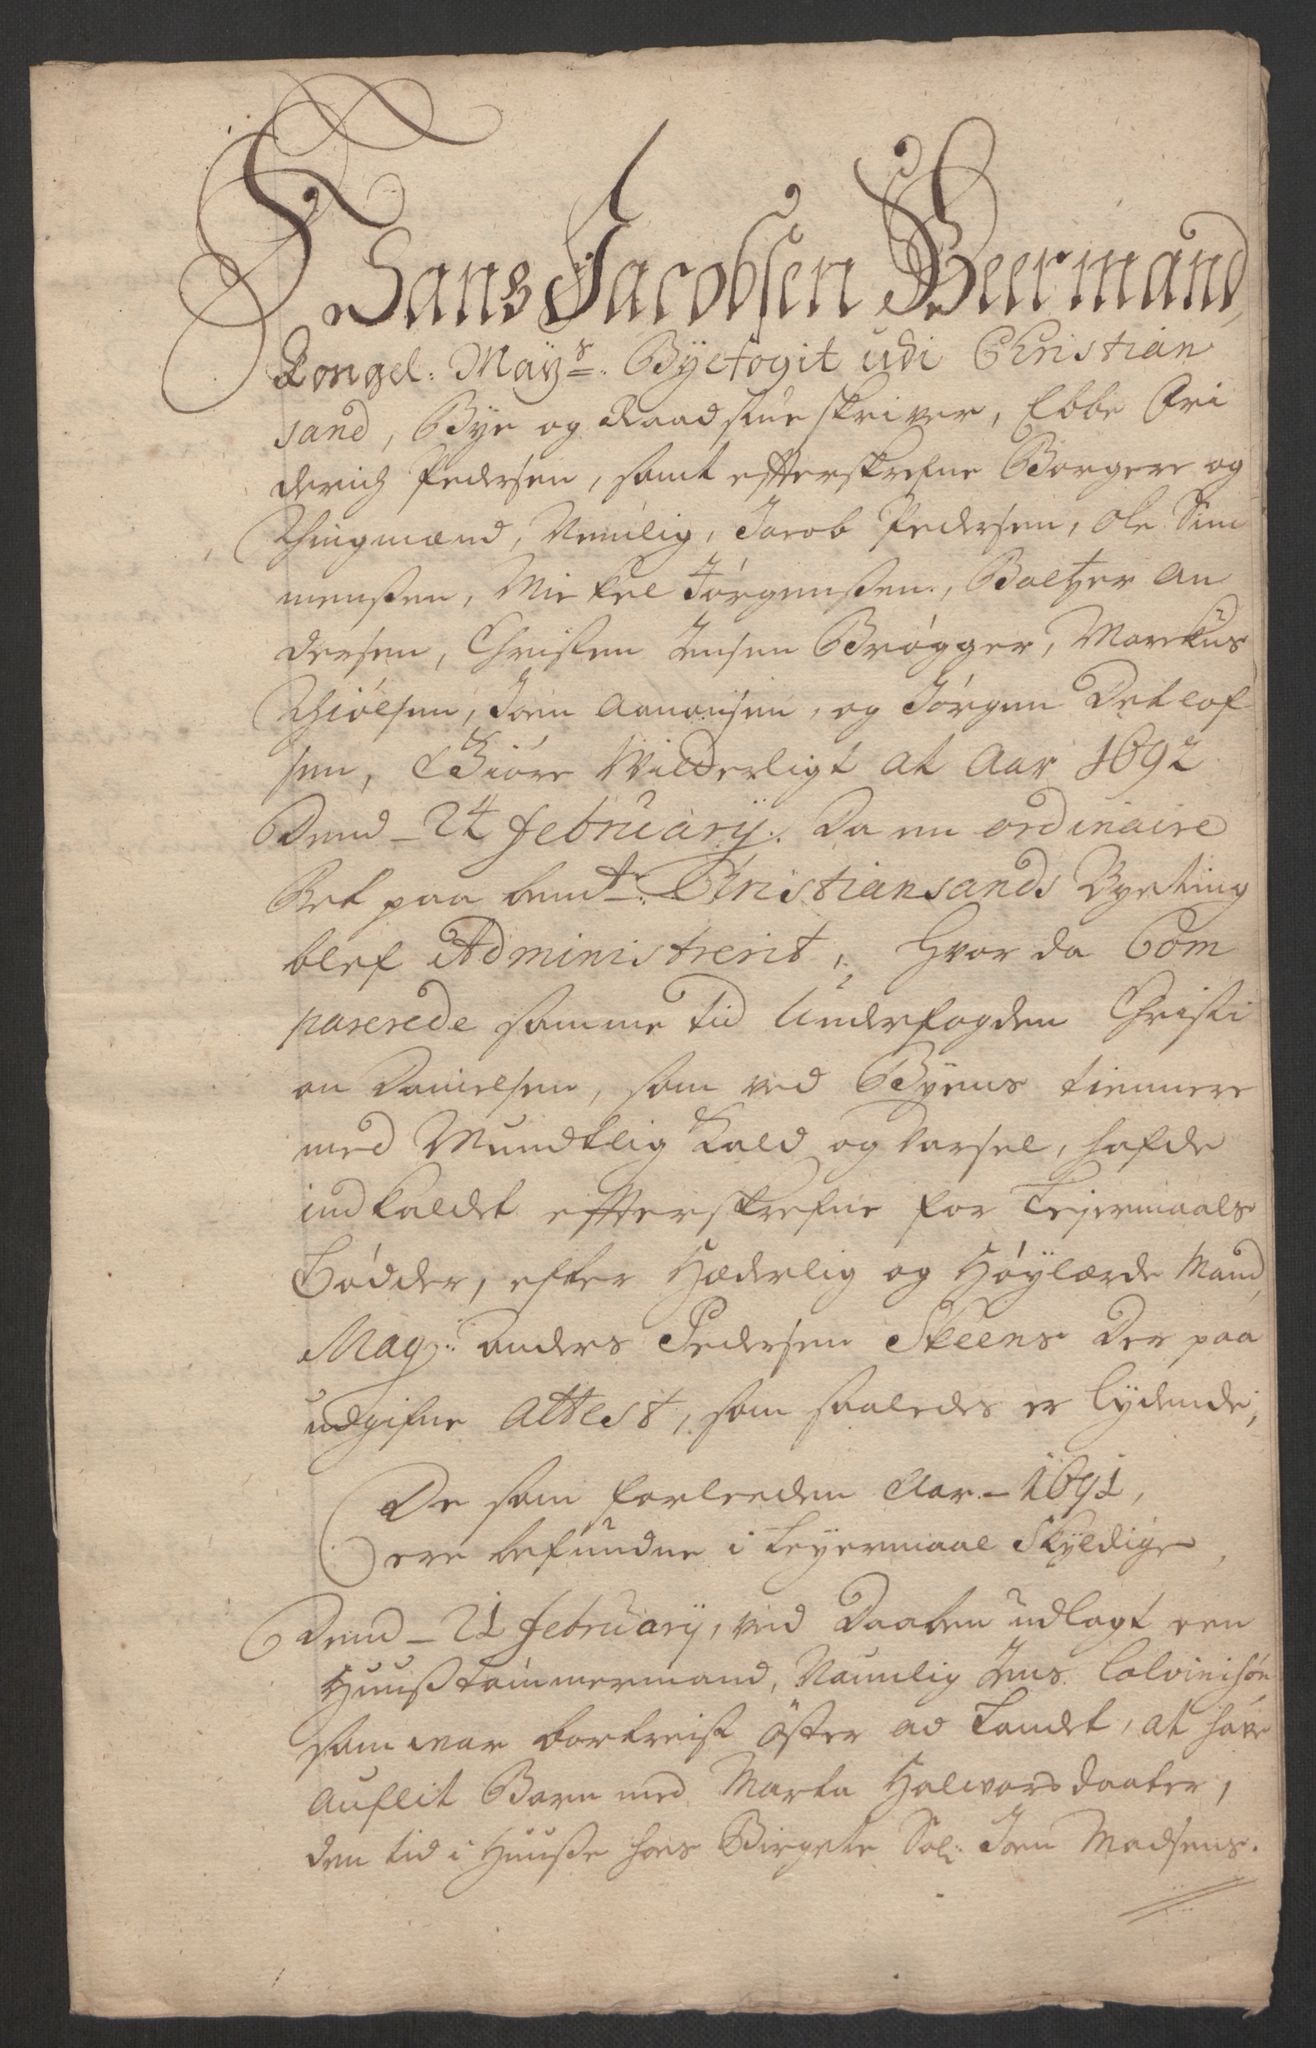 Hans Jacobsen Beermand,
Kongel: Mayts: Byefogit udi Christian
sand, Bye og Raadstueskriver, Ebbe Fri
derich Pedersen, samt efterskrefne Borgere og
Thingmænd, Nemlig, Jacob Pedersen, Ole Sim
menßen, Mickel Jørgenßen, Baltzer An
dersen, Christen Jensen Brøgger, Markus
Thiølsen, Joen Aanonsen, og Jørgen Detlof
sen, Giøre Vitterligt at Aar 1692
Dend 24 february. Da en ordinaire
Ret paa bemte: Christiansands Byeting
blef Administrerit, Hvor da Com
parerede samme tid Underfogden Christi
an Danielsen, som ved Byens tiennere
med Mundtlig Kald og Varsel, hafde
indkaldet efterskrefne for Lejermaals
Bødder, efter Hæderlig og Høylærde Mand,
Mag: Anders Pedersen Skeens der paa
udgifne Attest, som saaledes er lydende,
De som forleeden Aar 1691,
ere befundne i Leyermaal Skyldige,
Dend 21 february, ved Daaben udlagt een
Huußtømmermand, Naunlig Jens Calvinisøn
som war bortreist Øster ad Landet, at have
Auflit Barn med Marta Halvorsdaater,
den tid i Huuße hoes Birgete Sal: Joen Madsens.